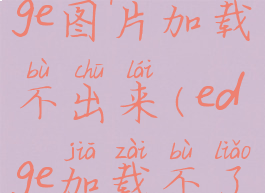 ge图片加载
bù chū lái
不出来(ed
jiā zài bù liǎo
ge加载不了